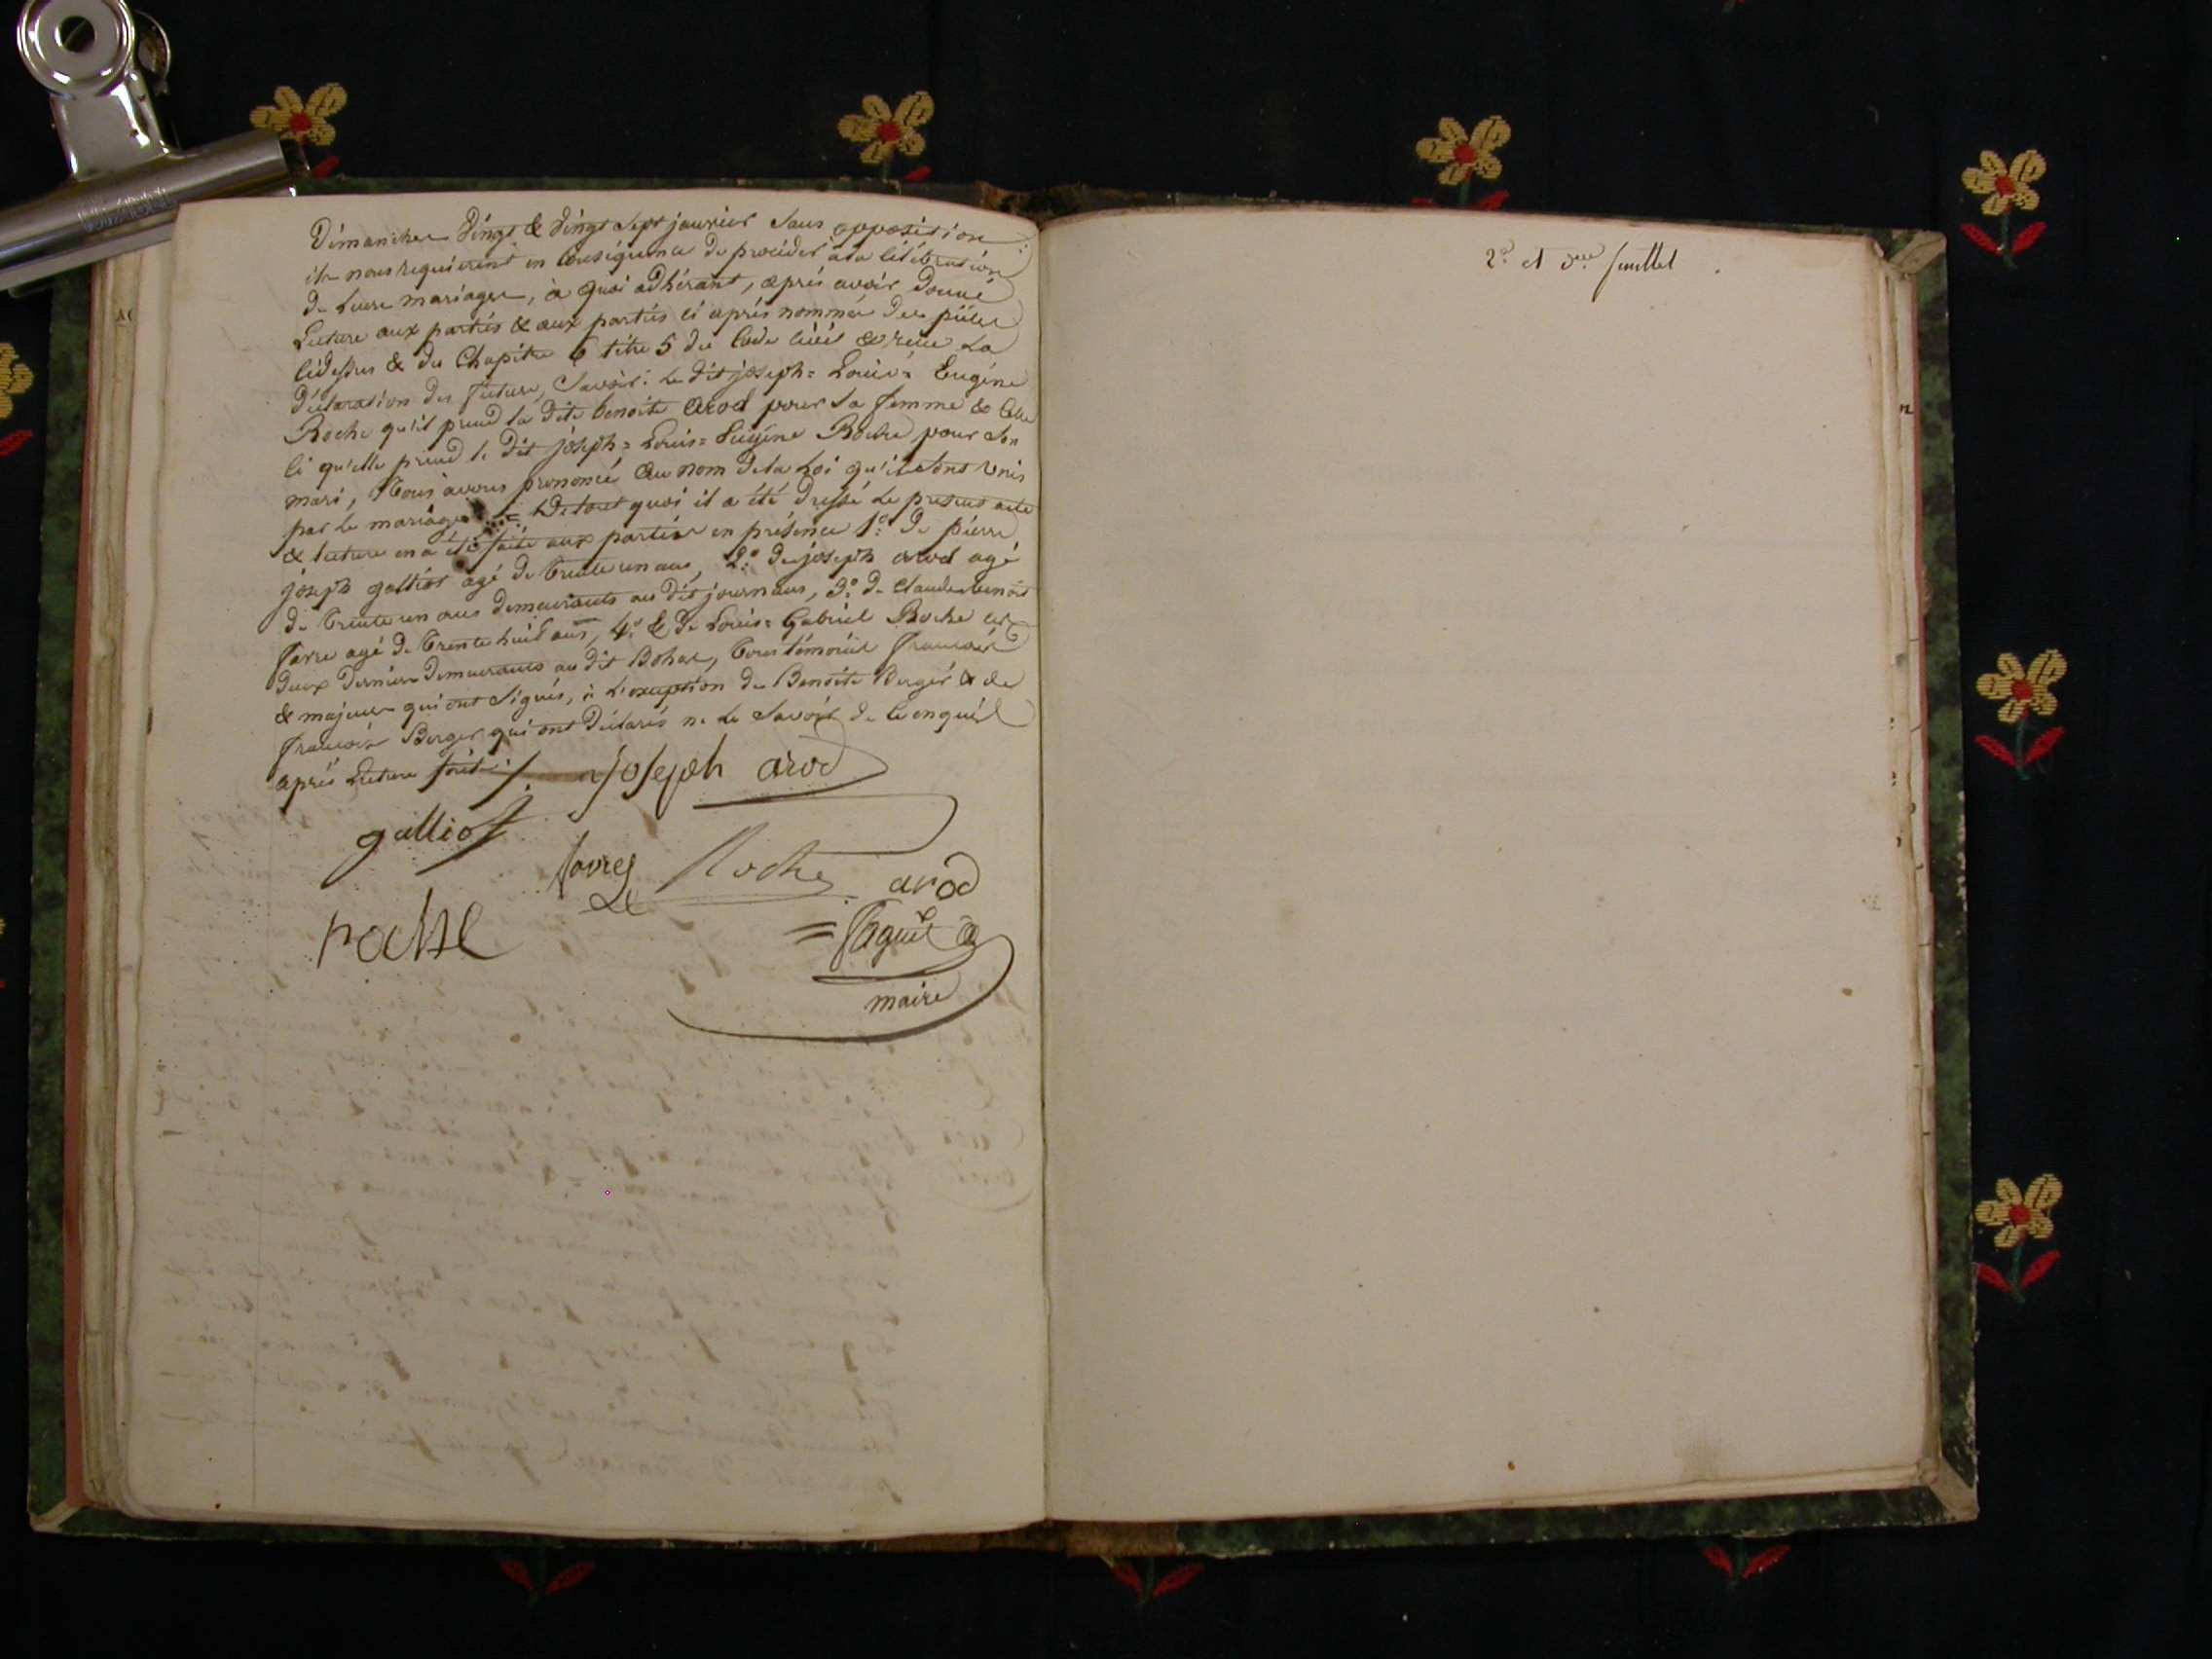 Dimanches Vingt & Vingt Sept janvier Sans opposition
ils nous requierent en Conséquence de procéder à la célébration
de Leur mariage, à quoi adhérant, après avoir Donné
Lecture aux parties & aux partiés ci après nommés Des pièces
cidessus & du Chapitre 6 titre 5 du Code Civil & reçu La
Déclaration des futurs, Savoir: le dit joseph = Louis = Eugéne
Roche qu'il prend la Dite benoite arod pour Sa femme & Celle
ci qu'elle prend le Dit joseph = Louis = Eugéne Roche pour Son
mari, Nous avons prononcé Au nom de la Loi qu'ils sont Unis
par le mariage = De tout quoi il a été Dressé Le present acte
& lecture en a été faite aux parties en présence 1.º De piérre
joseph galliot agé de trente un ans, 2.º De joseph arod agé
de trente un ans demeurants au dit journans, 3.º De claude benoit
favre agé de trente huit ans, 4.º & De Louis = Gabriel Roche ces
Deux Derniers Demeurants au dit Bohas, tous témoins francais
& majeurs qui ont Signés, à L'exception de Benoite Berger & de
francois Berger qui ont Déclarés ne Le Savoir de ce enquis
après Lecture faite./.
joseph arod
galliot
favre Roche arod
roche
maire
2.e et feuillet